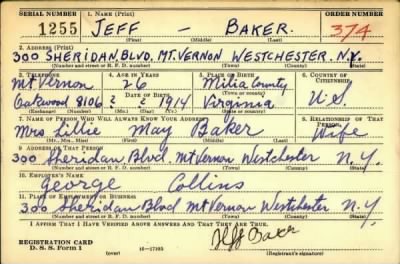 SERIAL NUMBER 1. NAME (Print) ORDER NUMBER
1255 JEFF — BAKER. 374
(First) (Middle) (Last)
2. ADDRESS (Print)
300 SHERIDAN BLVD. MT. VERNON WESTCHESTER. N.Y.
(Number and street or R. F. D. number) (Town) (County) (State)
3. TELEPHONE 4. AGE IN YEARS 5. PLACE OF BIRTH 6. COUNTRY OF CITIZENSHIP
Mt Vernon 26 County
DATE OF BIRTH
Oakwood 8106 2 2 1914 Virginia U.S.
(Exchange) (Number) (Mo.) (Day) (Yr.) (State or country)
7. NAME OF PERSON WHO WILL ALWAYS KNOW YOUR ADDRESS 8. RELATIONSHIP OF THAT PERSON
Mrs Lillie May Baker Wife
(Mr., Mrs., Miss) (First) (Middle) (Last)
9. ADDRESS OF THAT PERSON
300 Sheridan Blvd. Mt Vernon Westchester N.Y.
(Number and street or R. F. D. number) (Town) (County) (State)
10. EMPLOYER'S NAME
George Collins
11. PLACE OF EMPLOYMENT OR BUSINESS
300 Sheridan Blvd Mt Vernon Westchester N.Y.
(Number and street or R. F. D. number) (Town) (County) (State)
I AFFIRM THAT I HAVE VERIFIED ABOVE ANSWERS AND THAT THEY ARE TRUE.
Jeff Baker
REGISTRATION CARD
D. S. S. Form 1 (over) 16—17105 (Registrant's signature)